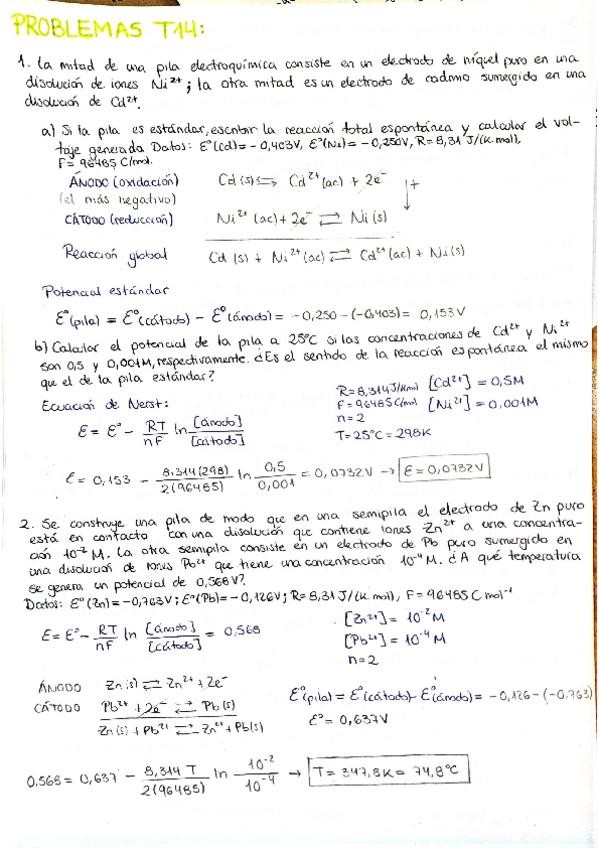 PROBLEMAS T14:
1. La mitad de una pila electroquímica consiste en un electrodo de níquel puro en una
disolución de iones Ni²⁺; la otra mitad es un electrodo de cadmio sumergido en una
disolución de Cd²⁺.
a) Si la pila es estándar, escribir la reacción total espontánea y calcular el vol-
taje generado. Datos: E°(Cd) = -0,403V, E°(Ni) = -0,250V, R = 8,31 J/(K·mol),
F = 96485 C/mol.
ÁNODO (oxidación) Cd (s) ⇆ Cd²⁺ (ac) + 2e⁻
(el más negativo) +
CÁTODO (reducción) Ni²⁺ (ac) + 2e⁻ ⇄ Ni (s)
Reacción global Cd (s) + Ni²⁺ (ac) ⇄ Cd²⁺ (ac) + Ni (s)
Potencial estándar
E°(pila) = E°(cátodo) - E°(ánodo) = -0,250 - (-0,403) = 0,153 V
b) Calcular el potencial de la pila a 25°C si las concentraciones de Cd²⁺ y Ni²⁺
son 0,5 y 0,001M, respectivamente. ¿Es el sentido de la reacción espontánea el mismo
que el de la pila estándar?
Ecuación de Nerst:
E = E° - RT/nF ln [ánodo]/[cátodo]
R = 8,314 J/Kmol [Cd²⁺] = 0,5M
F = 96485 C/mol [Ni²⁺] = 0,001M
n = 2
T = 25°C = 298K
E = 0,153 - 8,314(298)/2(96485) ln 0,5/0,001 = 0,0732V → E = 0,0732V
2. Se construye una pila de modo que en una semipila el electrodo de Zn puro
está en contacto con una disolución que contiene iones Zn²⁺ a una concentra-
ción 10⁻² M. La otra semipila consiste en un electrodo de Pb puro sumergido en
una disolución de iones Pb²⁺ que tiene una concentración 10⁻⁴ M. ¿A qué temperatura
se genera un potencial de 0,568V?
Datos: E°(Zn) = -0,763V; E°(Pb) = -0,126V; R = 8,31 J/(K mol), F = 96485 C mol⁻¹
E = E° - RT/nF ln [ánodo]/[cátodo] = 0,568
[Zn²⁺] = 10⁻² M
[Pb²⁺] = 10⁻⁴ M
n = 2
ÁNODO Zn (s) ⇄ Zn²⁺ + 2e⁻
CÁTODO Pb²⁺ + 2e⁻ ⇄ Pb (s)
Zn (s) + Pb²⁺ ⇄ Zn²⁺ + Pb (s)
E°(pila) = E°(cátodo) - E°(ánodo) = -0,126 - (-0,763)
E° = 0,637V
0,568 = 0,637 - 8,314 T/2(96485) ln 10⁻²/10⁻⁴ → T = 347,8K = 74,8°C